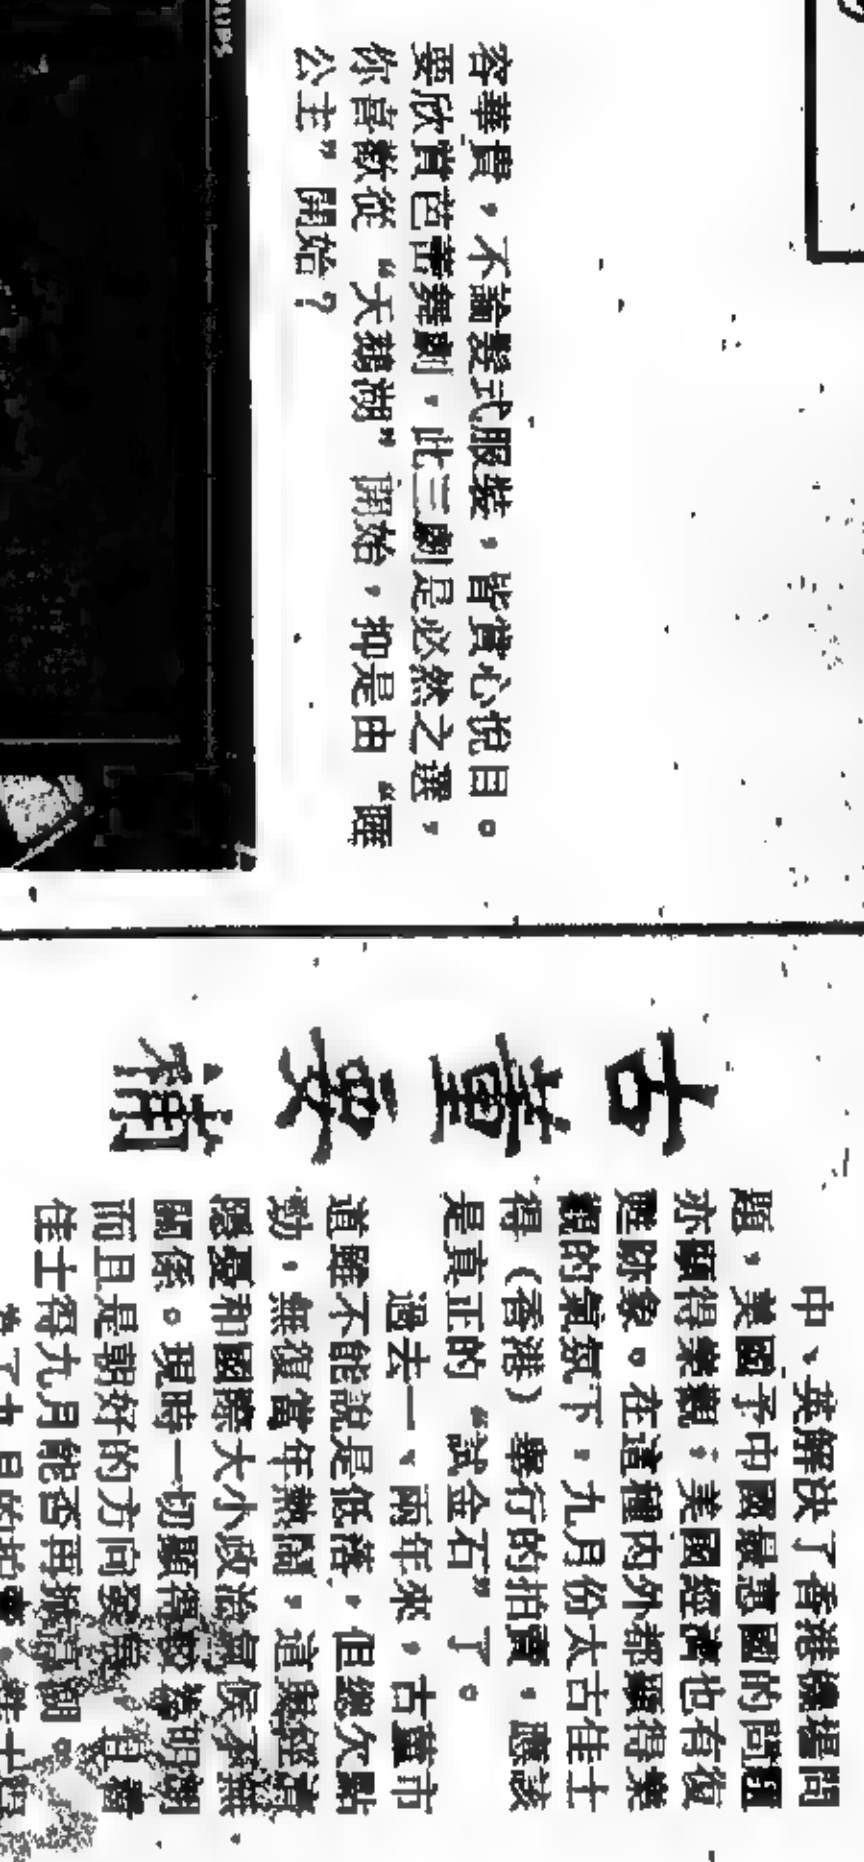 容華貴，不論髮式服裝，皆賞心悅目。
要欣賞芭蕾舞劇，此三劇是必然之選，
你喜歡從“天鵝湖”開始，抑是由“睡
公主”開始？
古董要
中、英解決了香港機場問
題，美國予中國最惠國的問題
亦顯得樂觀；美國經濟也有復
甦跡象。在這種內外都顯得樂
觀的氣氛下，九月份太古佳士
得（香港）舉行的拍賣，應該
是真正的“試金石”了。
過去一、兩年來，古董市
道雖不能說是低落，但總欠點
勁，無復當年熱鬧，這與經濟
隱憂和國際大小政治氣候不無
關係。現時一切顯得較為明朗
而且是朝好的方向發展，且看
佳士得九月能否再掀高潮。